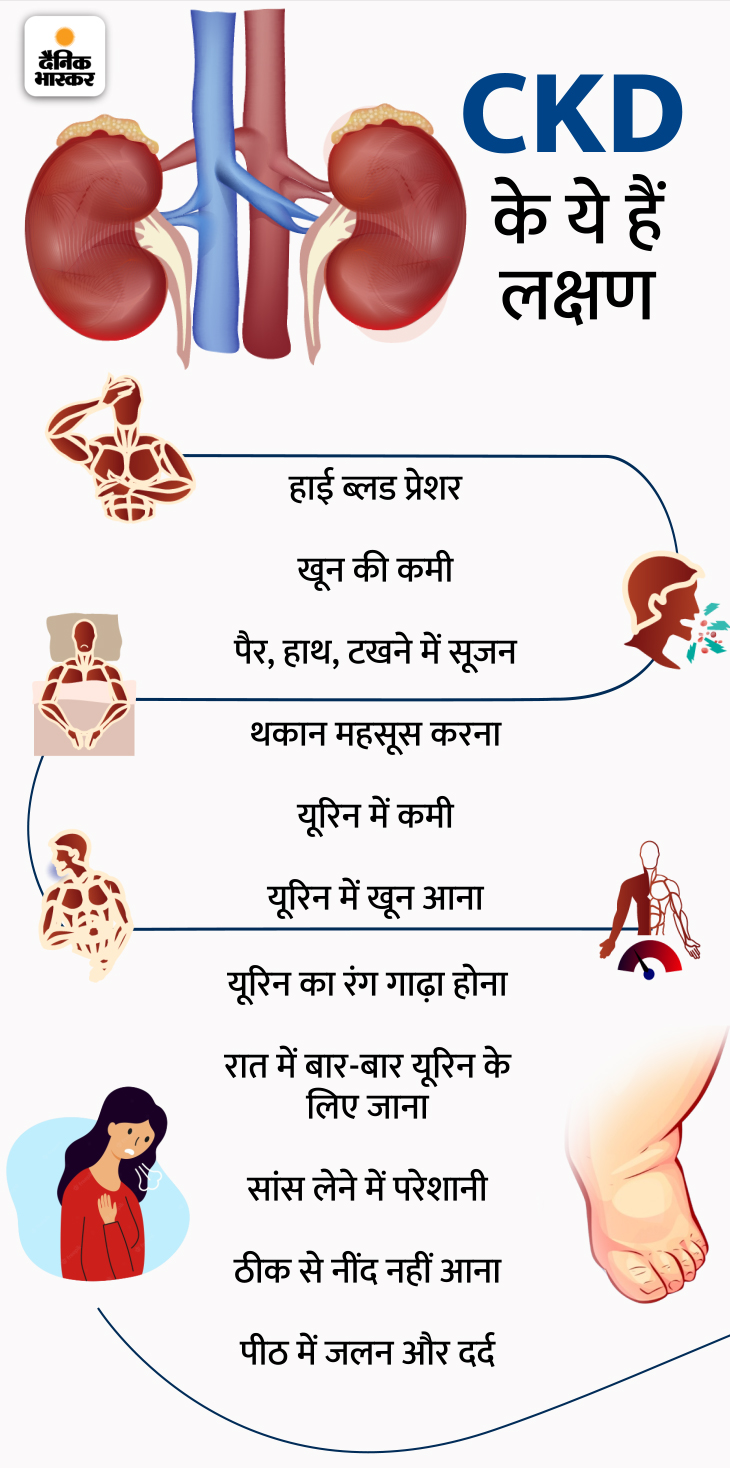 दैनिक
भास्कर
CKD
के ये हैं
लक्षण
हाई ब्लड प्रेशर
खून की कमी
पैर, हाथ, टखने में सूजन
थकान महसूस करना
यूरिन में कमी
यूरिन में खून आना
यूरिन का रंग गाढ़ा होना
रात में बार-बार यूरिन के
लिए जाना
सांस लेने में परेशानी
ठीक से नींद नहीं आना
पीठ में जलन और दर्द